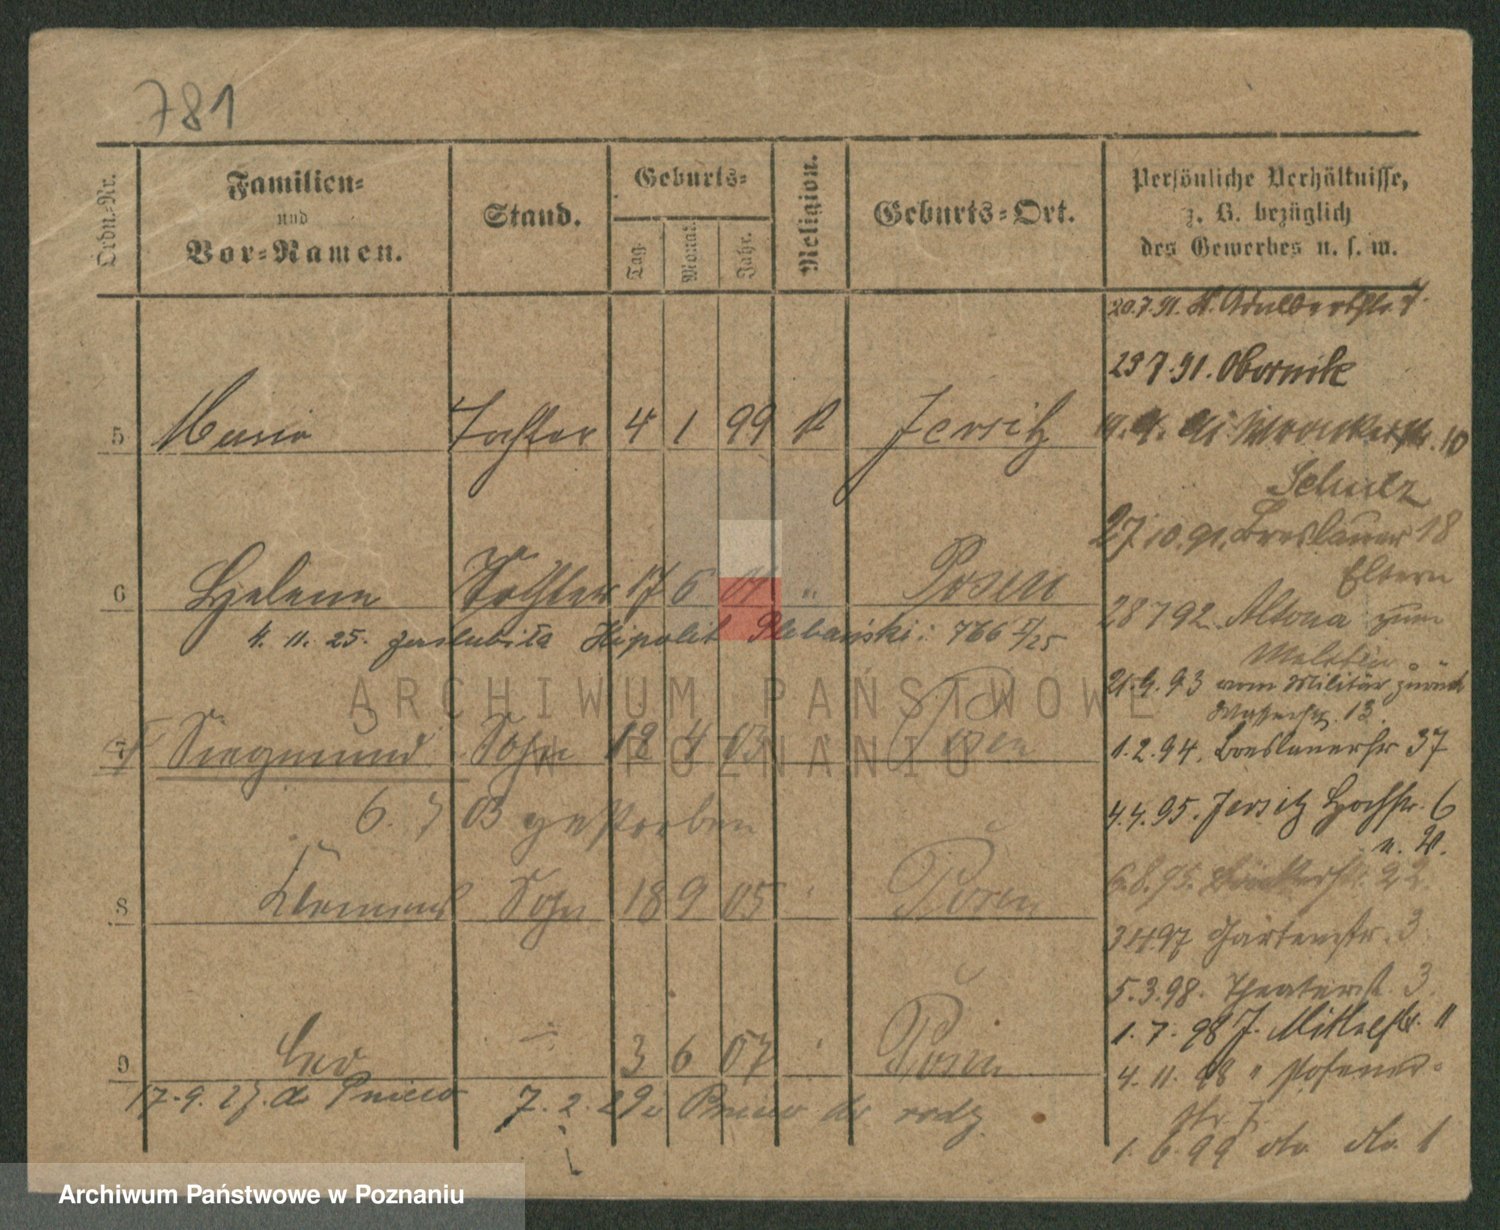 781
Ordn.-Nr.
Familien-
und
Vor-Namen.
Stand.
Geburts-
Tag.
Monat.
Jahr.
Religion.
Geburts-Ort.
Persönliche Verhältnisse,
z. B. bezüglich
des Gewerbes u. s. w.
20.7.91. St. Adalbertstr. 7.
29 7. 91. Obornik
5 Maria Tochter 4 1 99 k Jersitz
10
Schulz
27.10.91. Breslauer 18
Eltern
6 Helene Tochter 17 6 01 " Posen
4. 11. 25. zaślubiła Hipolit Plebański: 766 /25
28 7 92. Altona zum
Militär
21.9.93 vom Militär zurück
13.
7 Siegmund Sohn 18 4 03 " Posen
1.2.94. Breslauerstr 37
6. 7 03 gestorben
4.4.95. Jersitz Hochstr. 6
n. W.
6.8.95. 22.
8 Klemens Sohn 18 9 05 " Posen
3 4 97 Gartenstr. 3
5.3.98. Theaterst. 3.
1. 7. 98 J. Mittelstr. 11
9 Leo — 3 6 07 " Posen
4. 11. 98 " Posener-
str 7
17.9.27. do Pniew 7. 2. 29 z Pniew do rodz
1. 6. 99 do. do. 1
ARCHIWUM PAŃSTWOWE
W POZNANIU
Archiwum Państwowe w Poznaniu